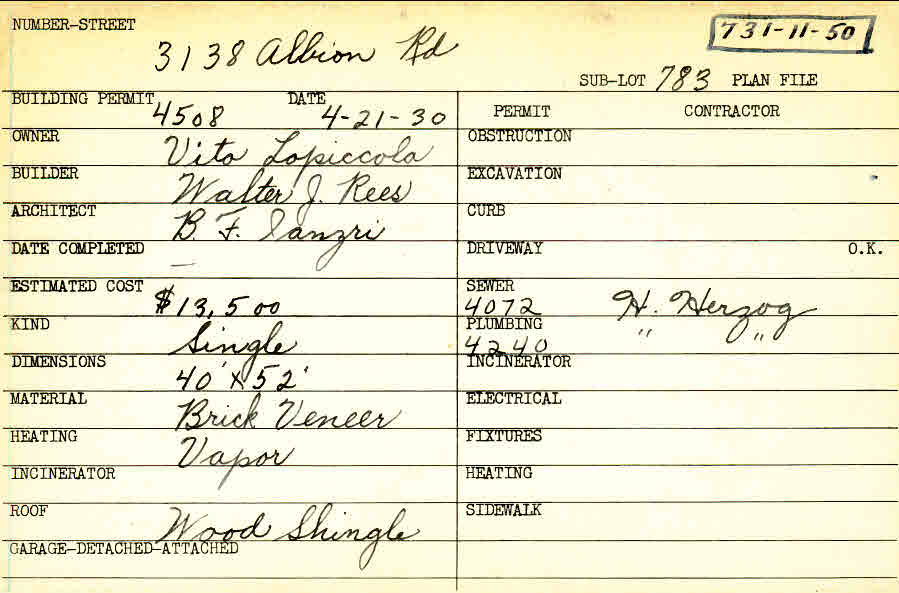 NUMBER-STREET
3138 Albion Rd
731-11-50
SUB-LOT 783 PLAN FILE
BUILDING PERMIT 4508 DATE 4-21-30
OWNER Vito Lopiccola
BUILDER Walter J. Rees
ARCHITECT B. F.
DATE COMPLETED —
ESTIMATED COST $13,500
KIND Single
DIMENSIONS 40' x 52'
MATERIAL Brick Veneer
HEATING Vapor
INCINERATOR
ROOF Wood Shingle
GARAGE-DETACHED-ATTACHED
PERMIT CONTRACTOR
OBSTRUCTION
EXCAVATION
CURB
DRIVEWAY O.K.
SEWER 4072 H. Herzog
PLUMBING 4240 " "
INCINERATOR
ELECTRICAL
FIXTURES
HEATING
SIDEWALK